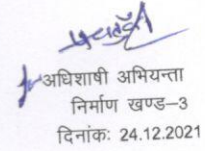 अधिशाषी अभियन्ता
निर्माण खण्ड–3
दिनांकः 24.12.2021